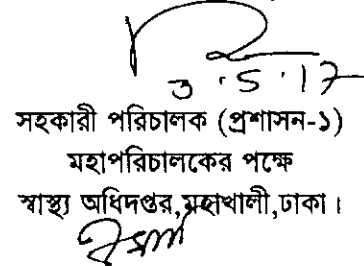 3.5.17
সহকারী পরিচালক (প্রশাসন-১)
মহাপরিচালকের পক্ষে
স্বাস্থ্য অধিদপ্তর,মহাখালী,ঢাকা।